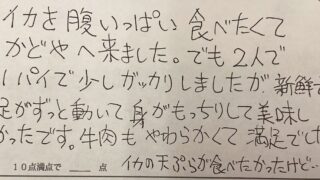 イカを腹いっぱい食べたくて
かどやへ来ました。でも2人で
1パイで少しガッカリしましたが、新鮮で
足がずっと動いて身がもっちりして美味し
かったです。牛肉もやわらかくて満足でした
10点満点で ___ 点
イカの天ぷらが食べたかったけど…